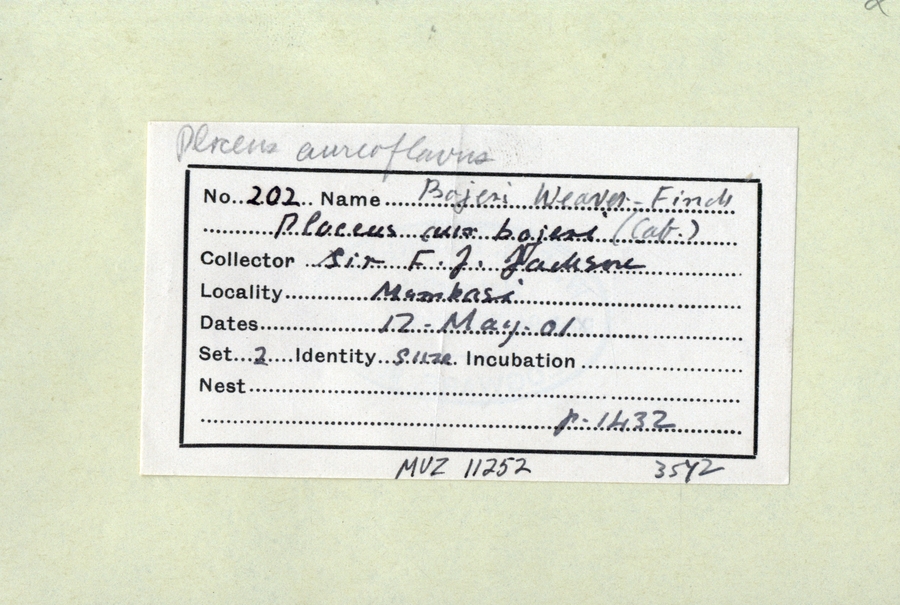 Ploceus aureoflavus
No. 202 Name Bojeri Weaver-Finch
Ploceus aur bojeri (Cab.)
Collector Sir F. J. Jackson
Locality
Dates 12-May-01
Set 2 Identity sure Incubation
Nest
p.1432
MVZ 11252 3572